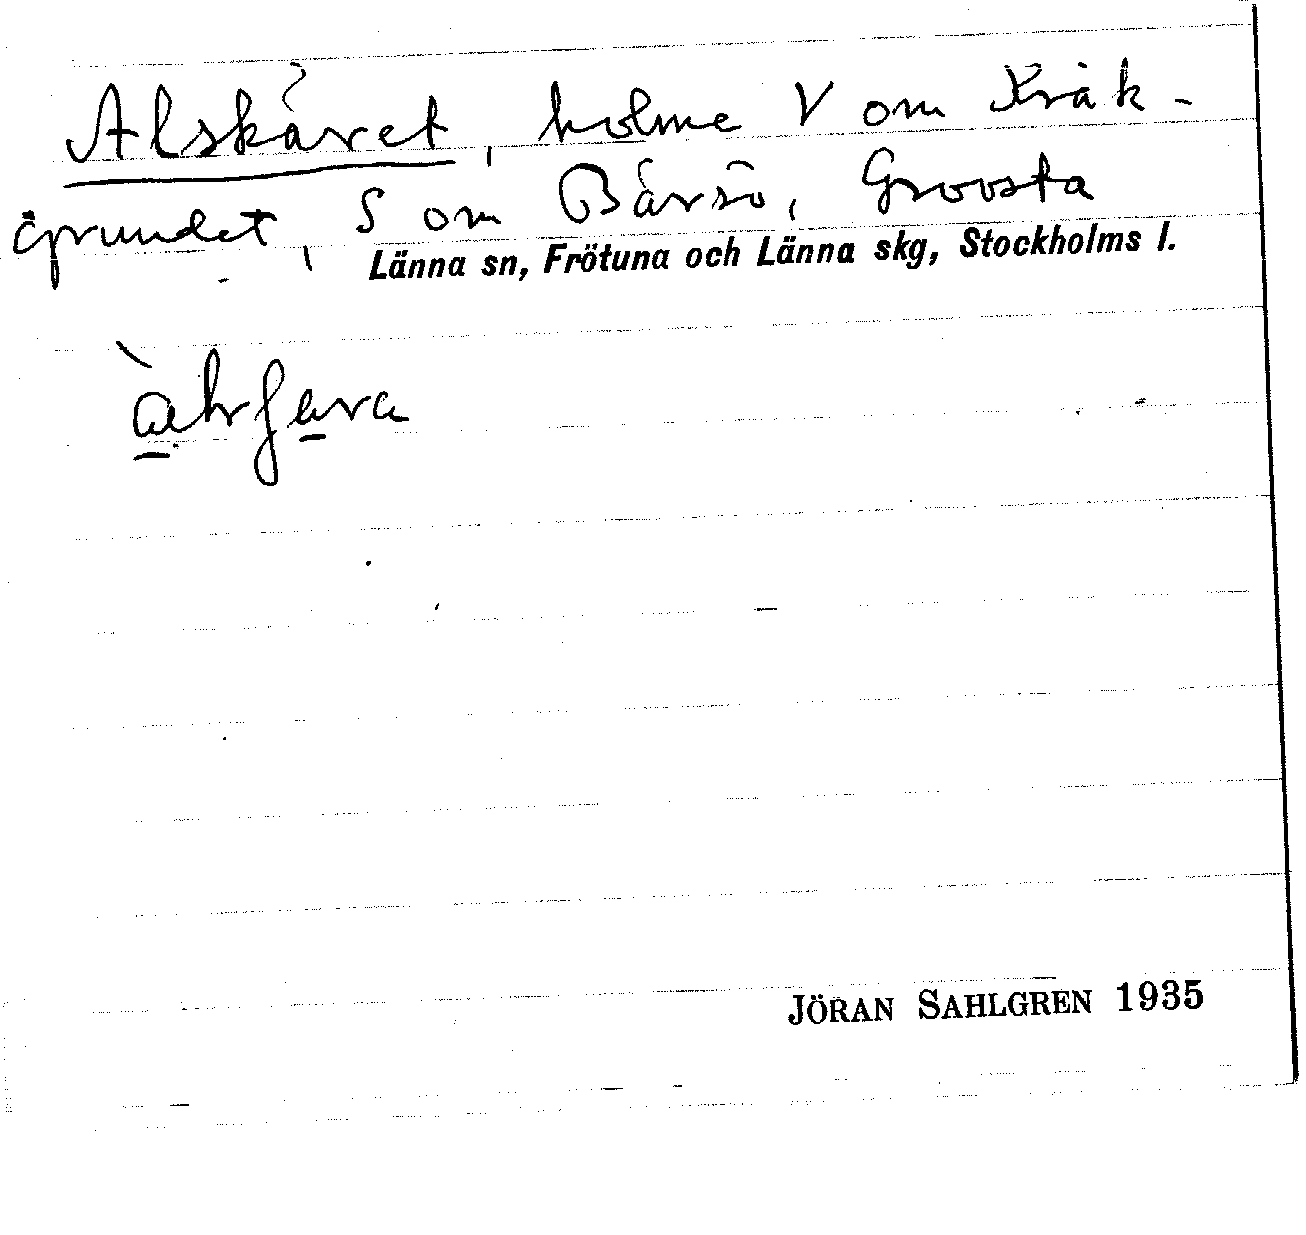 Alskäret, holme V om Kråk-
grundet, S om Bärsö, Grovsta
Länna sn, Frötuna och Länna skg, Stockholms l.
JÖRAN SAHLGREN 1935